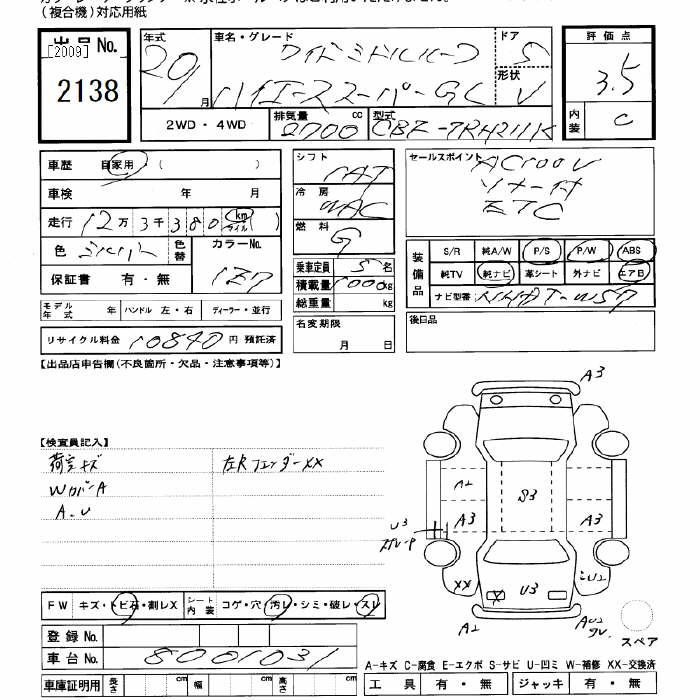 (複合機)対応用紙
出品 No.
[2009]
2138
年式 車名・グレード ドア 評価点
20 9月 ワイドミドルルーフ 5 3.5
ハイエーススーパーGL 形状 V
2WD・4WD 排気量 2700 cc 型式 CBF-TRH211K 内装 C
車歴 自家用・( )
車検 年 月
走行 12万3千380 km マイル ( )
色 シルバー 色替 カラーNo. 1E7
保証書 有・無
モデル年式 年 ハンドル 左・右 ディーラー・並行
リサイクル料金 10840 円 預託済
シフト
冷房 WAC
燃料 G
乗車定員 5 名
積載量 1000 kg
総重量 kg
名変期限
月 日
セールスポイント AC100V
ソナー付
ETC
装備品 S/R 純A/W P/S P/W ABS
純TV 純ナビ 革シート 外ナビ エアB
ナビ型番
後日品
【出品店申告欄(不良箇所・欠品・注意事項等)】
【検査員記入】
荷室キズ 左Rフェンダー XX
WカバーA
A.U
A3
A2
S3
A3
A3
U3
XX
X
U3
A2
スペア
FW キズ・トビ石・割レX シート内装 コゲ・穴・汚レ・シミ・破レ・スレ
登録 No.
車台 No. 8001031
車庫証明用 長さ cm 幅 cm 高さ cm
A-キズ C-腐食 E-エクボ S-サビ U-凹ミ W-補修 XX-交換済
工具 有・無 ジャッキ 有・無